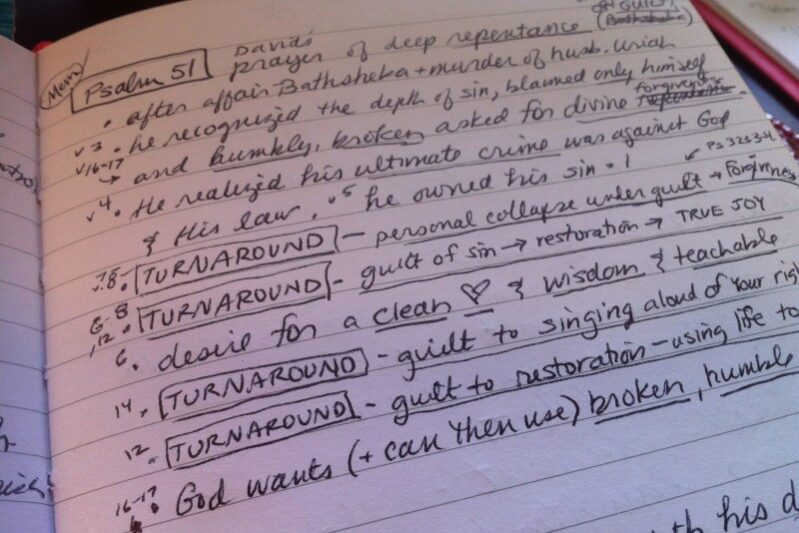 Mem Psalm 51 David's prayer of deep repentance (Bathsheba) GUILT
• after affair Bathsheba + murder of husb. Uriah
v3 • he recognized the depth of sin, blamed only himself
v16-17 → and humbly, broken asked for divine forgiveness
v4 • He realized his ultimate crime was against God
& His law. v5 he owned his sin • 1 ↙ Ps 32:3-4
v.8 • TURNAROUND - personal collapse under guilt → Forgiveness
6-8, 12 • TURNAROUND - guilt of sin → restoration → TRUE JOY
6 • desire for a clean ♡ & wisdom & teachable
14 • TURNAROUND - guilt to singing aloud of Your
12 • TURNAROUND - guilt to restoration - using life to
16-17 • God wants (+ can then use) broken, humble
his